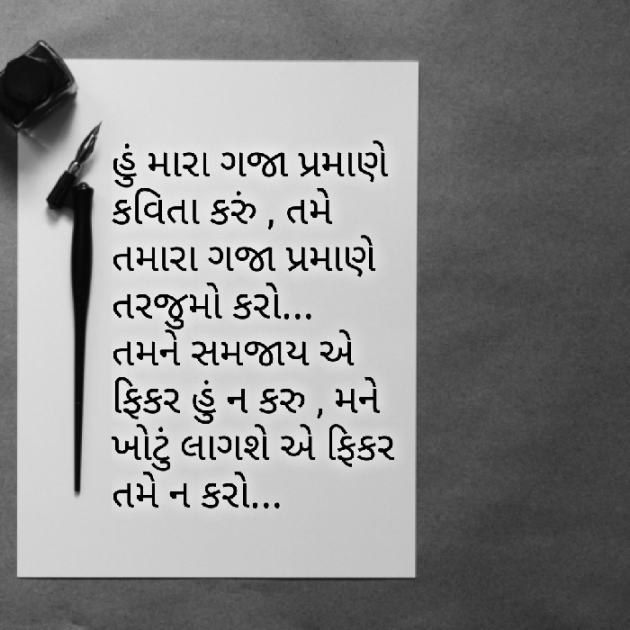 હું મારા ગજા પ્રમાણે
કવિતા કરું , તમે
તમારા ગજા પ્રમાણે
તરજુમો કરો...
તમને સમજાય એ
ફિકર હું ન કરુ , મને
ખોટું લાગશે એ ફિકર
તમે ન કરો...